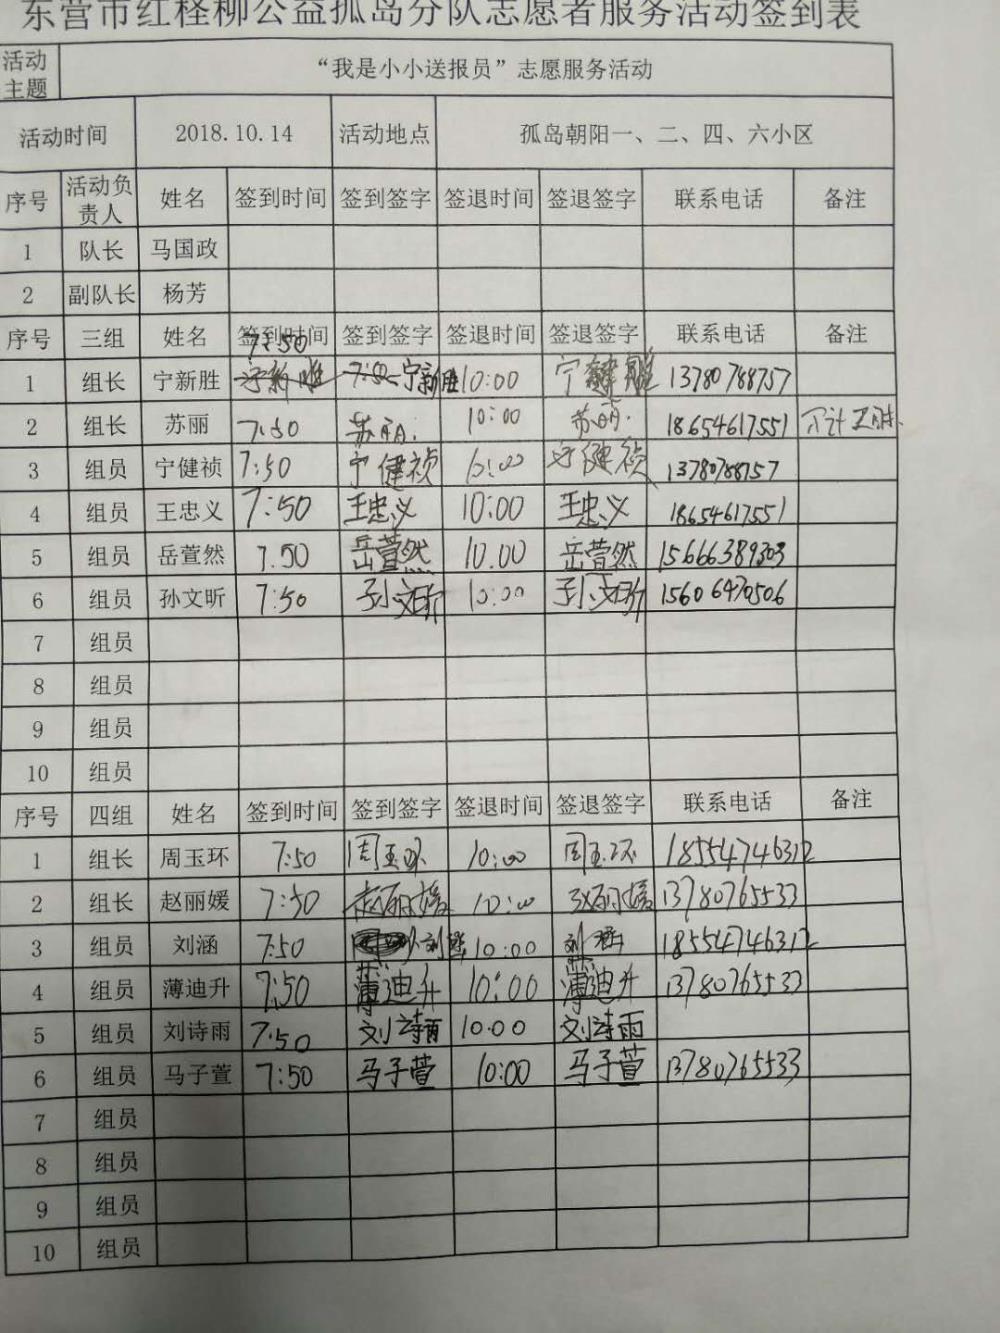 东营市红柽柳公益孤岛分队志愿者服务活动签到表
活动主题 “我是小小送报员”志愿服务活动
活动时间 2018.10.14 活动地点 孤岛朝阳一、二、四、六小区
序号 活动负责人 姓名 签到时间 签到签字 签退时间 签退签字 联系电话 备注
1 队长 马国政
2 副队长 杨芳
序号 三组 姓名 签到时间 签到签字 签退时间 签退签字 联系电话 备注
1 组长 宁新胜 7:50 7:50 宁新胜 10:00 13780788757
2 组长 苏丽 7:50 苏丽 10:00 苏丽 18654617551 不计
3 组员 宁健祯 7:50 宁健祯 10:00 宁健祯 13780788757
4 组员 王忠义 7:50 王忠义 10:00 王忠义 18654617551
5 组员 岳萱然 7.50 岳萱然 10.00 岳萱然 15666389303
6 组员 孙文昕 7:50 孙文昕 10:00 孙文昕 15606470506
7 组员
8 组员
9 组员
10 组员
序号 四组 姓名 签到时间 签到签字 签退时间 签退签字 联系电话 备注
1 组长 周玉环 7:50 周玉环 10:00 周玉环 18554746312
2 组长 赵丽媛 7:50 赵丽媛 10:00 赵丽媛 13780765533
3 组员 刘涵 7:50 刘 10:00 刘 18554746312
4 组员 薄迪升 7:50 薄迪升 10:00 薄迪升 13780765533
5 组员 刘诗雨 7:50 刘诗雨 10:00 刘诗雨
6 组员 马子萱 7:50 马子萱 10:00 马子萱 13780765533
7 组员
8 组员
9 组员
10 组员